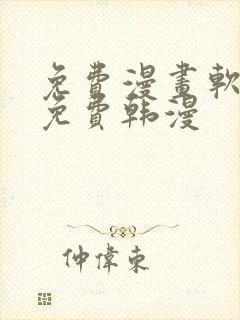 免費漫畫軟
免費韩漫
仲偉東